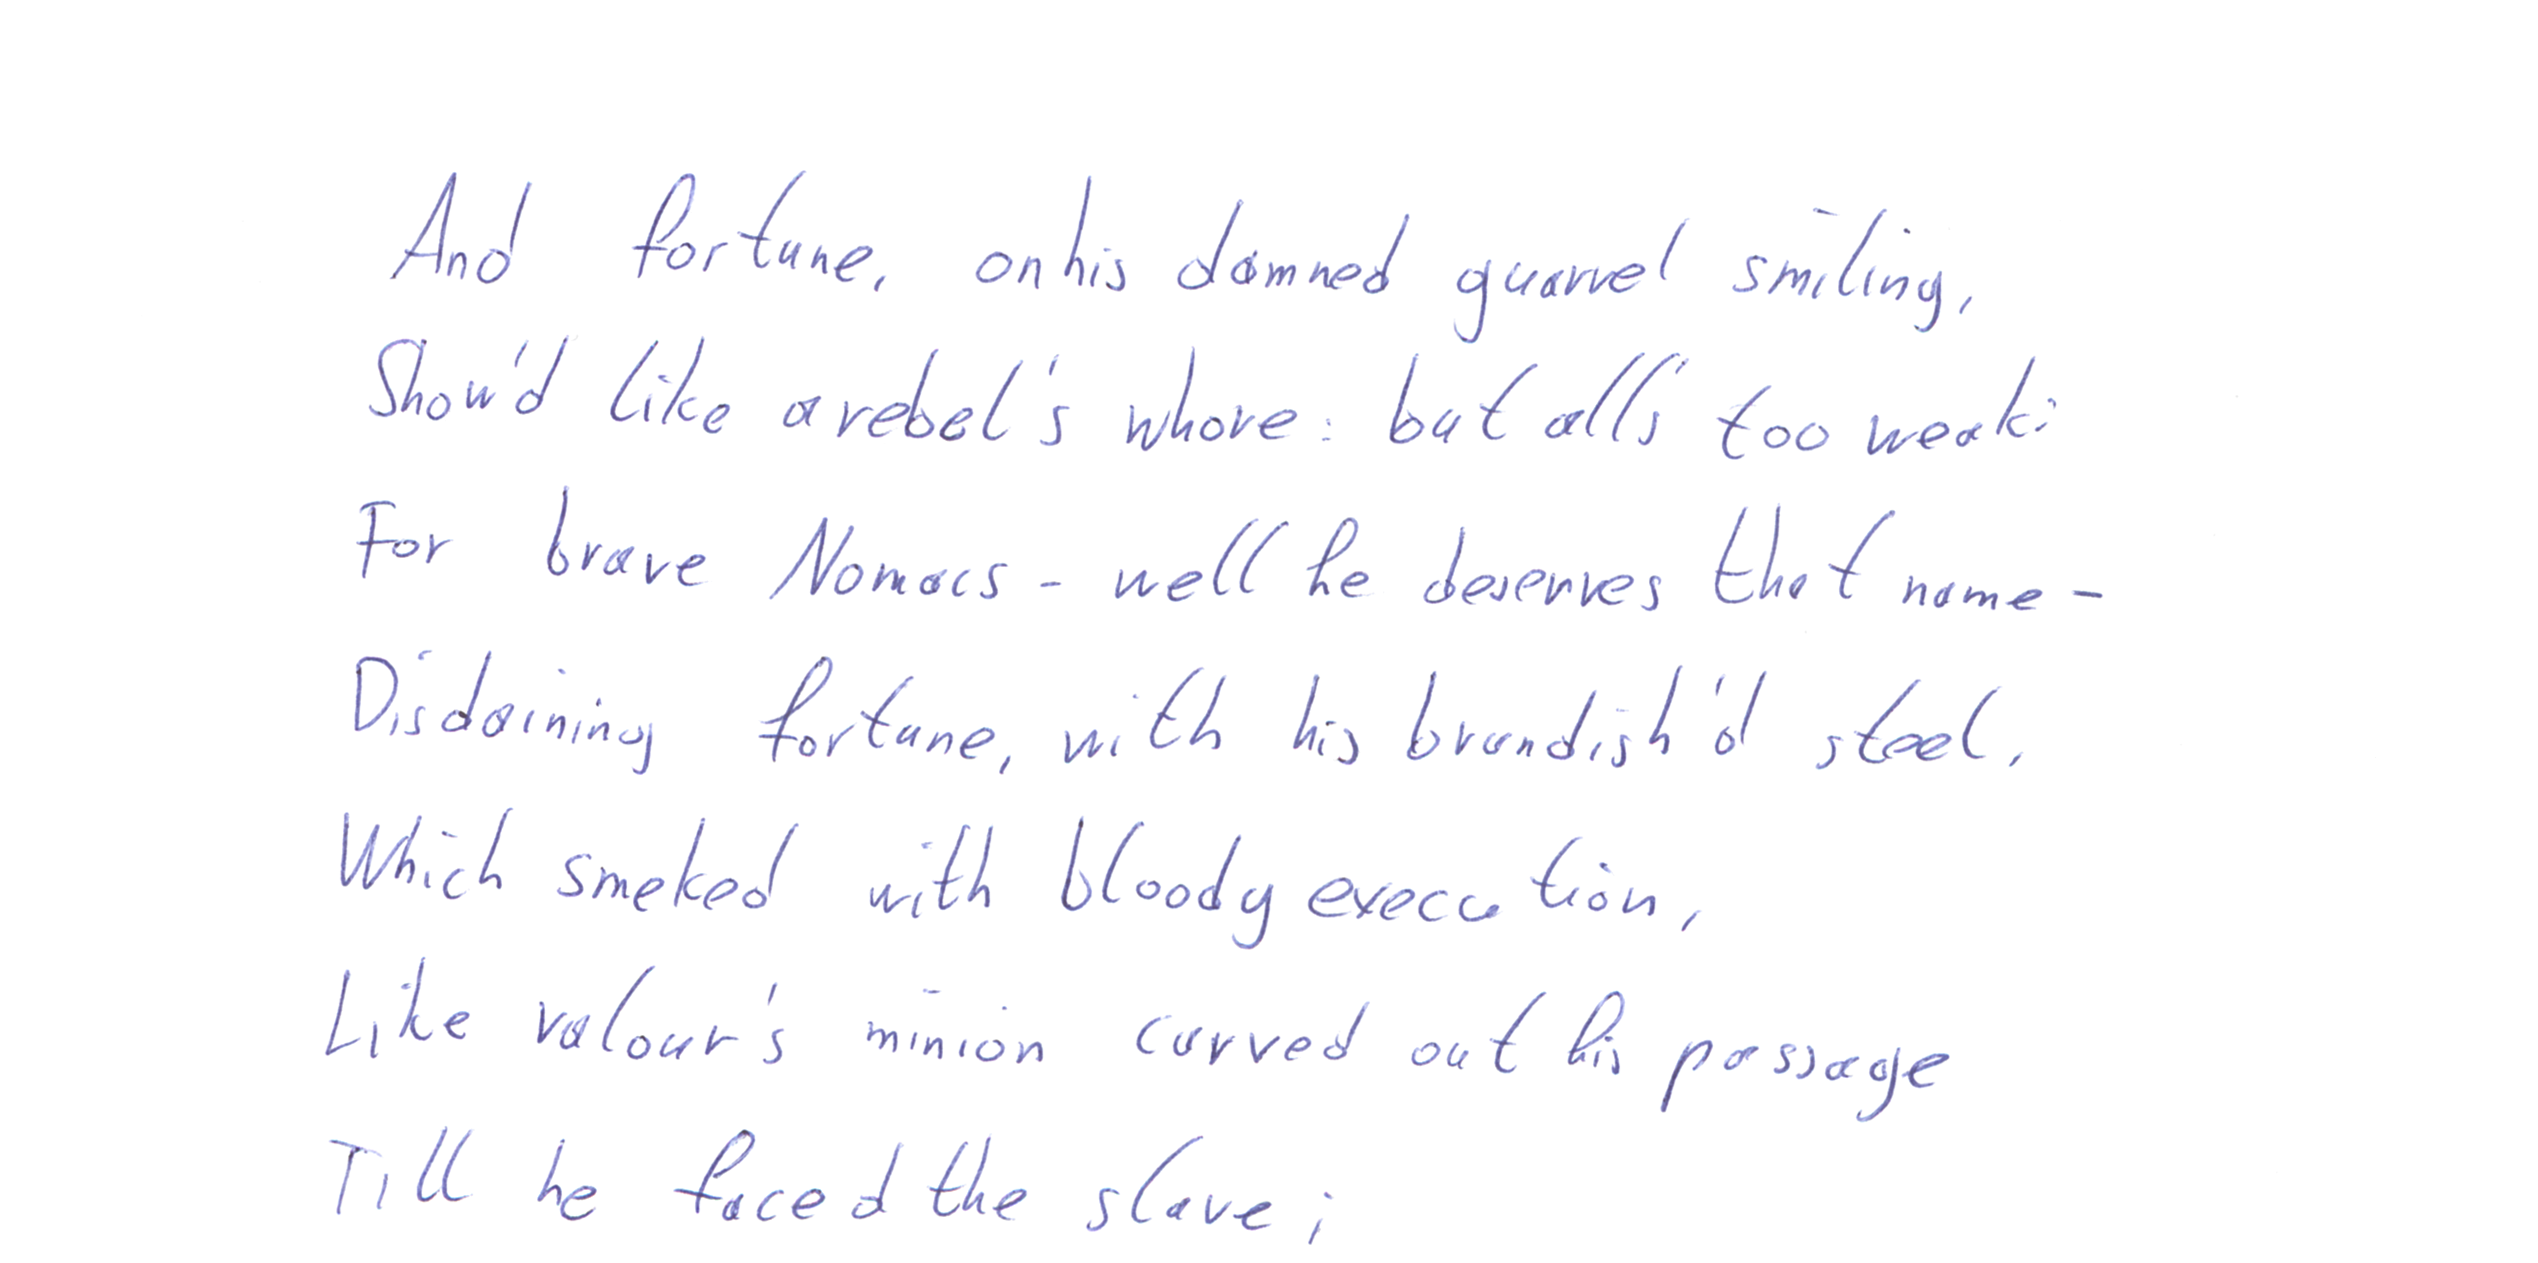 And fortune, on his damned quarrel smiling,
Show'd like a rebel's whore: but all's too weak:
For brave Nomacs - well he deserves that name -
Disdaining fortune, with his brandish'd steel,
Which smeked with bloody execution,
Like valour's minion curved out his passage
Till he faced the slave;